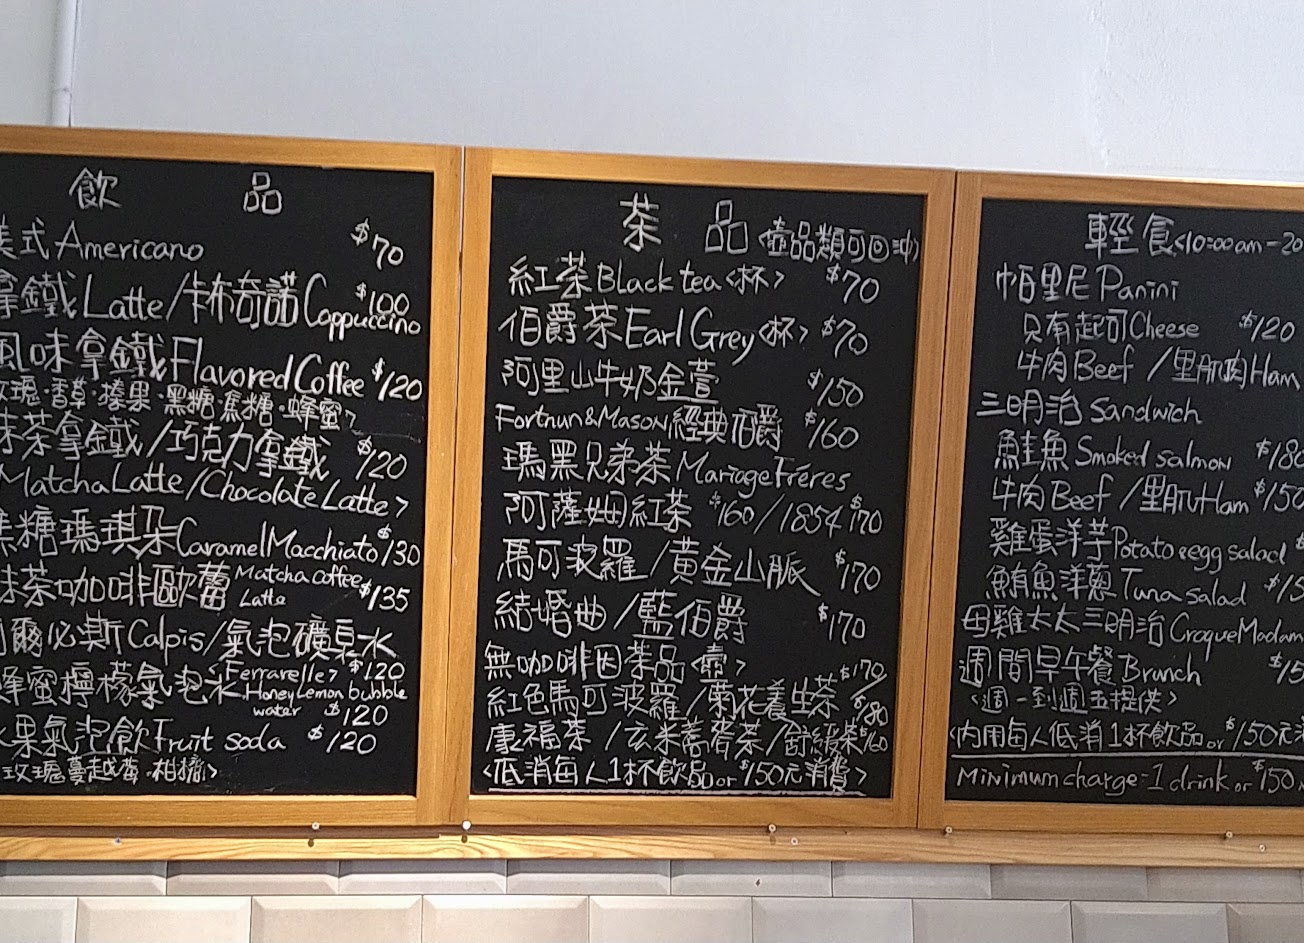 飲 品
式 Americano $70
拿鐵 Latte/卡布奇諾 Cappuccino $100
風味拿鐵 Flavored Coffee $120
玫瑰·香草·榛果·黑糖·焦糖·蜂蜜>
抹茶拿鐵/巧克力拿鐵 $120
Matcha Latte/Chocolate Latte>
焦糖瑪琪朵 Caramel Macchiato $130
抹茶咖啡歐蕾 Matcha coffee Latte $135
爾必斯 Calpis/氣泡礦泉水
Ferrarelle> $120
蜂蜜檸檬氣泡水 Honey Lemon bubble water $120
水果氣泡飲 Fruit soda $120
玫瑰 蔓越莓·柑橘>
茶 品 <壺品類可回沖>
紅茶 Black tea <杯> $70
伯爵茶 Earl Grey <杯> $70
阿里山牛奶金萱 $150
Fortnun & Mason 經典伯爵 $160
瑪黑兄弟茶 Mariage Fréres
阿薩姆紅茶 $160/1854 $170
馬可波羅/黃金山脈 $170
結婚曲/藍伯爵 $170
無咖啡因茶品<壺>
紅色馬可波羅/菊花養生茶 $170/180
康福茶/玄米蕎麥茶/舒緩茶 $160
<低消每人1杯飲品or $150元消費>
輕食 <10:00am-20
帕里尼 Panini
只有起司 Cheese $120
牛肉 Beef /里肌肉 Ham
三明治 Sandwich
鮭魚 Smoked salmon $180
牛肉 Beef /里肌 Ham $150
雞蛋洋芋 Potato & egg salad $
鮪魚洋蔥 Tuna salad $15
母雞太太三明治 Croque Madam
週間早午餐 Brunch $15
<週一到週五提供>
<內用每人低消1杯飲品or $150元消
Minimum charge=1 drink or $150